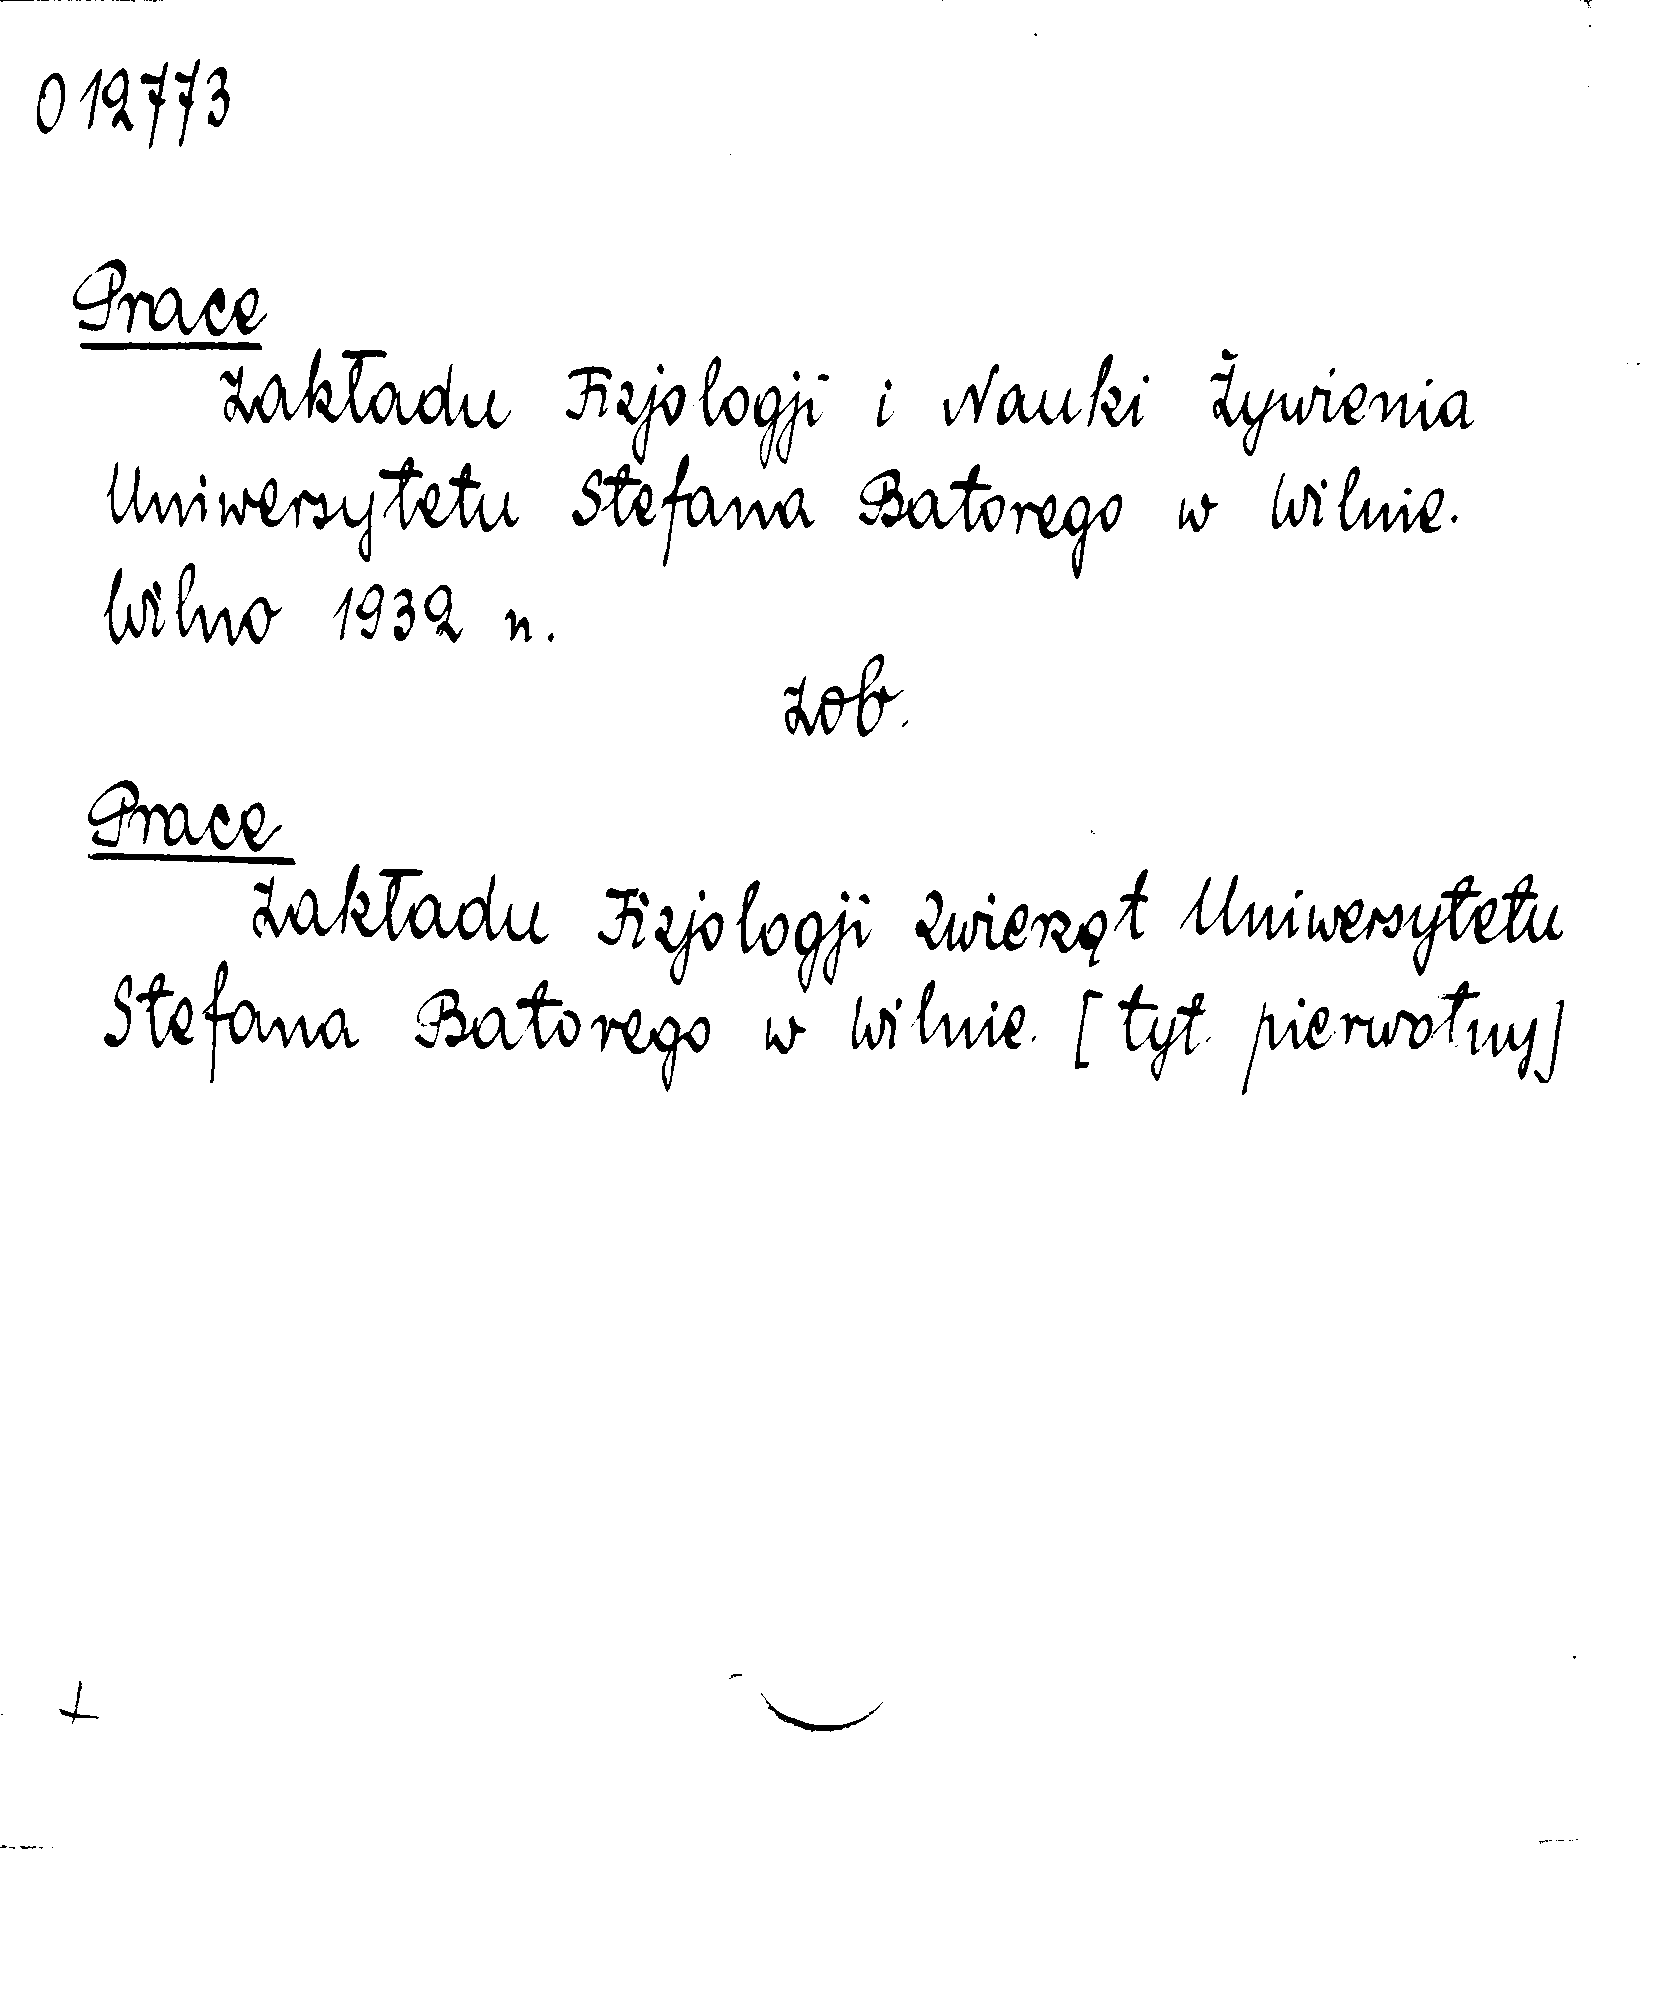 012773
Prace
Zakładu Fizjologji i Nauki Żywienia
Uniwersytetu Stefana Batorego w Wilnie.
Wilno 1932 n.
zob.
Prace
Zakładu Fizjologji Zwierząt Uniwersytetu
Stefana Batorego w Wilnie. [tyt. pierwotny]